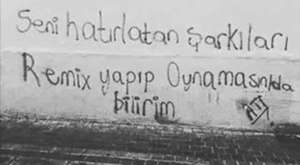 Seni hatırlatan Şarkıları
Remix yapıp Oynamasınıda
bilirim